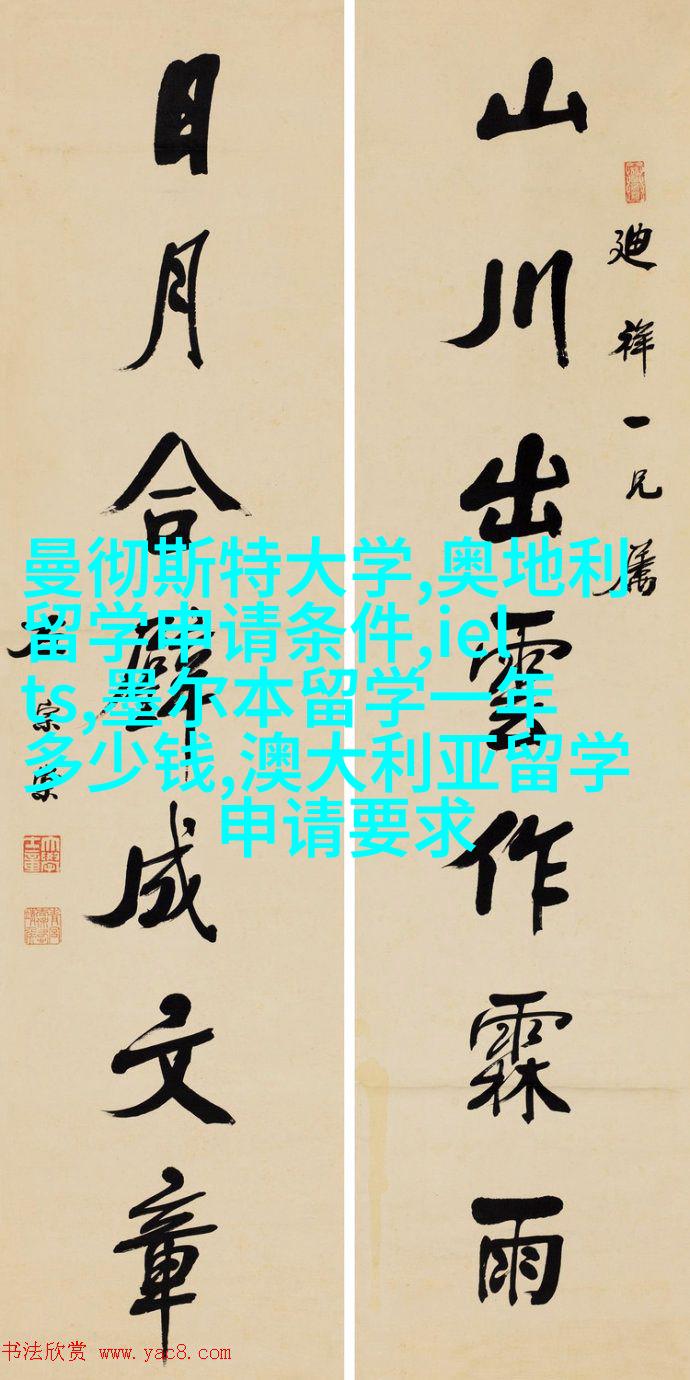 山川出雲作霖雨
廸祥一兄属
日月合璧成文章
宗棠
曼彻斯特大学,奥地利
留学申请条件,iel
ts,墨尔本留学一年
多少钱,澳大利亚留学
申请要求
书法欣赏 www.yac8.com